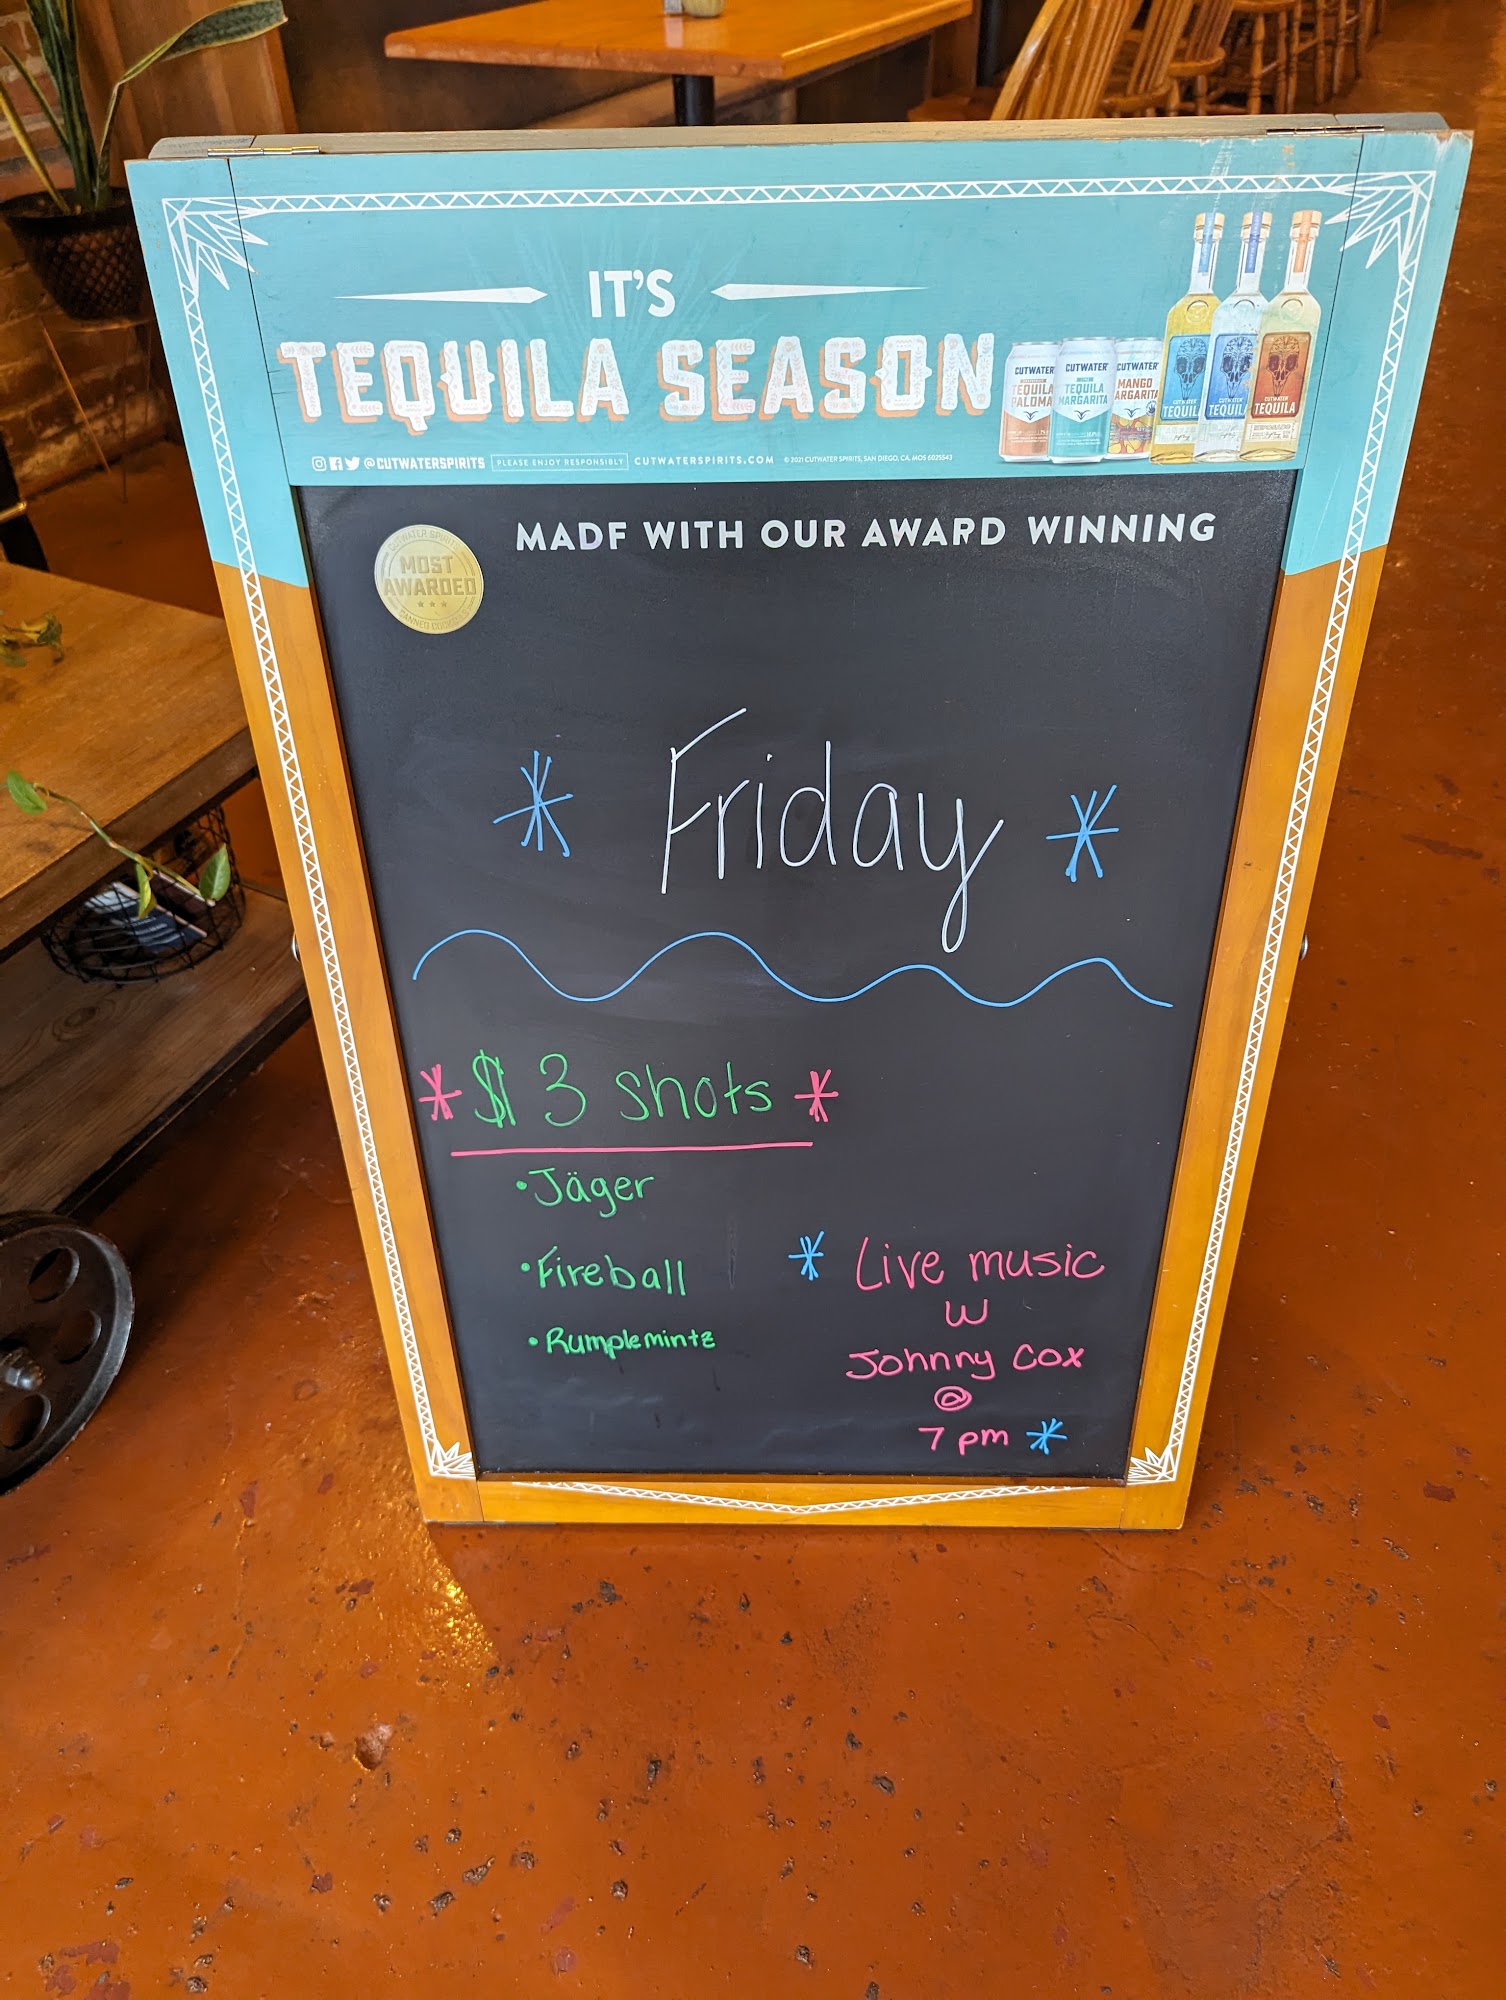 IT'S
TEQUILA SEASON
CUTWATER
TEQUILA
PALOMA
CUTWATER
TEQUILA
MARGARITA
CUTWATER
MANGO
MARGARITA
CUTWATER
TEQUILA
CUTWATER
TEQUILA
CUTWATER
TEQUILA
@CUTWATERSPIRITS PLEASE ENJOY RESPONSIBLY CUTWATERSPIRITS.COM © 2021 CUTWATER SPIRITS, SAN DIEGO, CA. MOS 6025543
MADF WITH OUR AWARD WINNING
CUTWATER SPIRITS
MOST
AWARDED
CANNED COCKTAILS
* Friday *
* $3 shots *
• Jäger
• Fireball
• Rumplemintz
* Live music
W
Johnny Cox
@
7 pm *